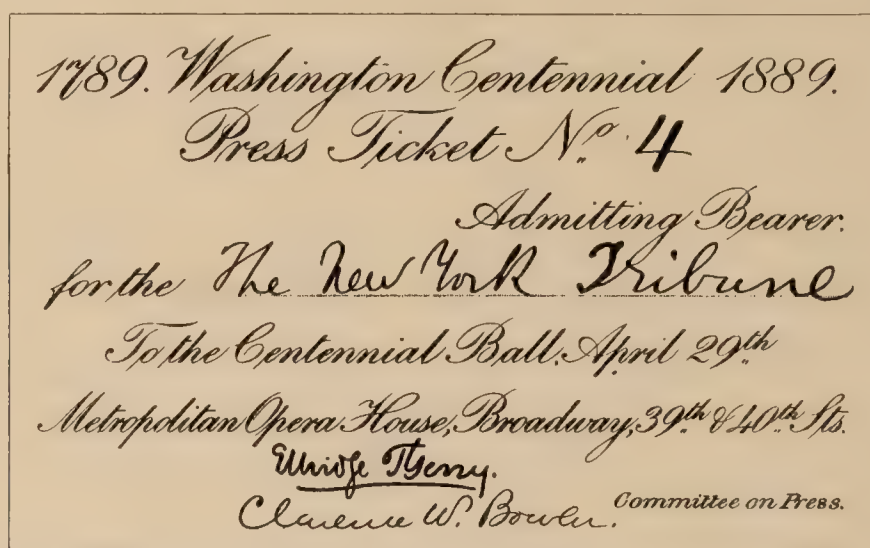 1789. Washington Centennial 1889.
Press Ticket No. 4
Admitting Bearer.
for the The New York Tribune
To the Centennial Ball. April 29th
Metropolitan Opera House, Broadway, 39th & 40th Sts.
Elbridge T. Gerry.
Clarence W. Bowen. Committee on Press.